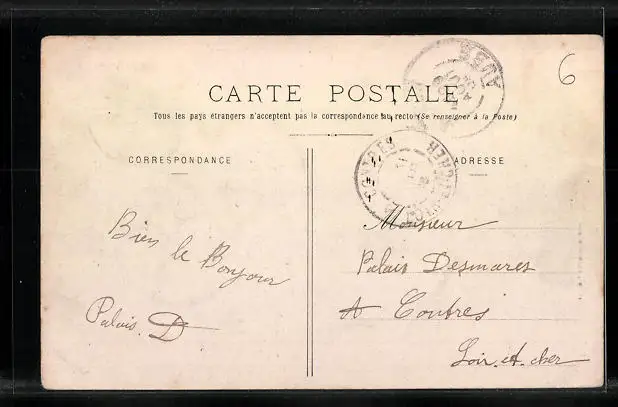 CARTE POSTALE
Tous les pays étrangers n'acceptent pas la correspondance au recto (Se renseigner à la Poste)
CORRESPONDANCE
ADRESSE
6
Bien le Bonjour
Palais. D
Monsieur
Palais Desmares
A Contres
Loir. et. cher
CONTRES
LOIR ET CHER